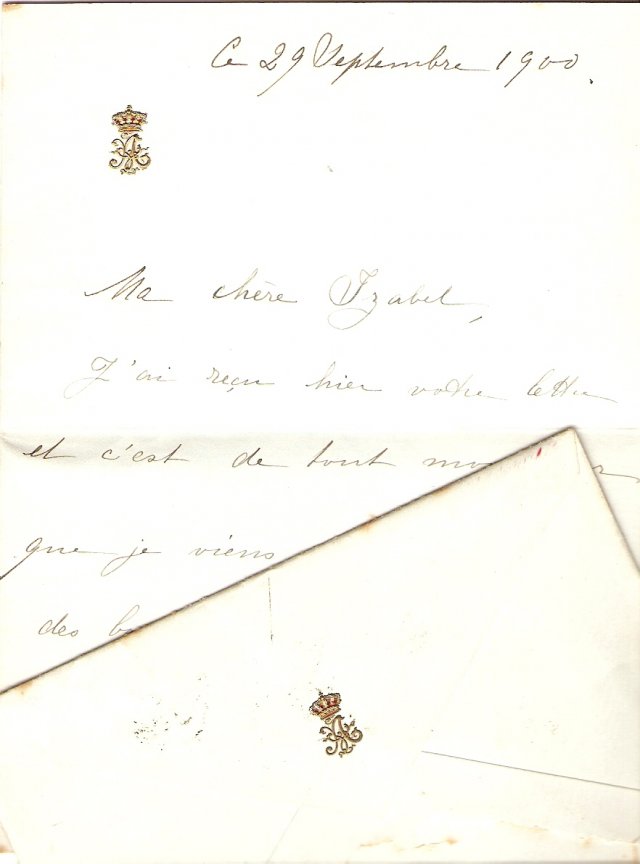 Ce 29 Septembre 1900.
Ma chère Izabel,
J'ai reçu hier votre lettre
et c'est de tout
que je viens
des